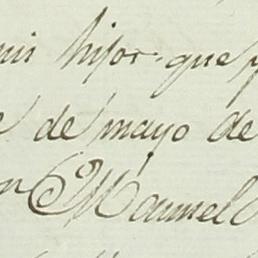 mis hijos que
de mayo de
Manuel